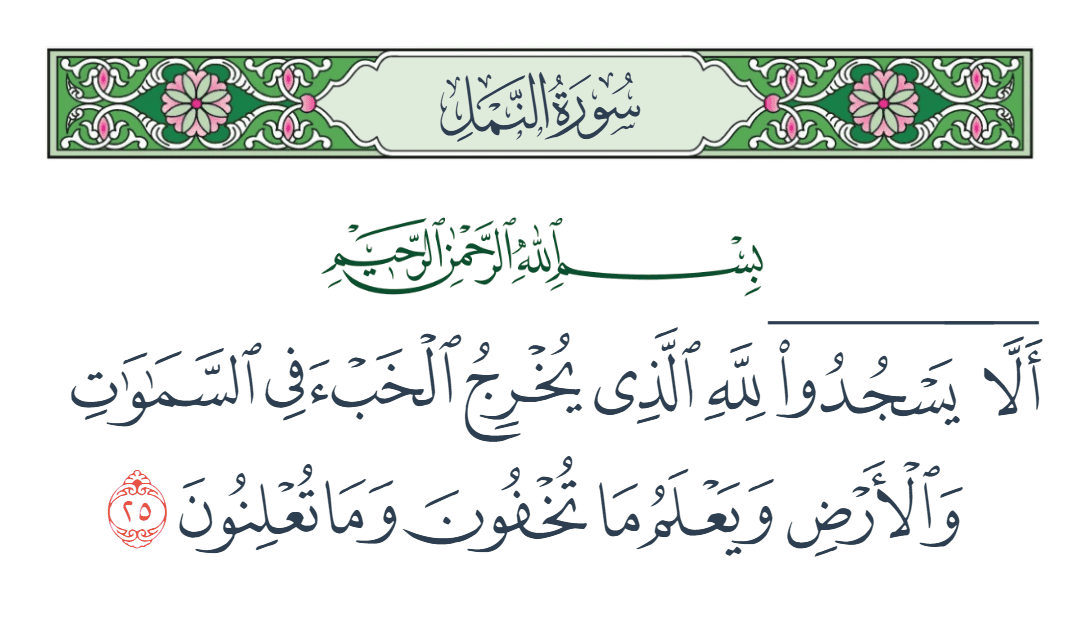 سُورَةُ النَّمْلِ
بِسْمِ ٱللَّهِ ٱلرَّحْمَٰنِ ٱلرَّحِيمِ
أَلَّا يَسْجُدُوا۟ لِلَّهِ ٱلَّذِى يُخْرِجُ ٱلْخَبْءَ فِى ٱلسَّمَٰوَٰتِ
وَٱلْأَرْضِ وَيَعْلَمُ مَا تُخْفُونَ وَمَا تُعْلِنُونَ ٢٥